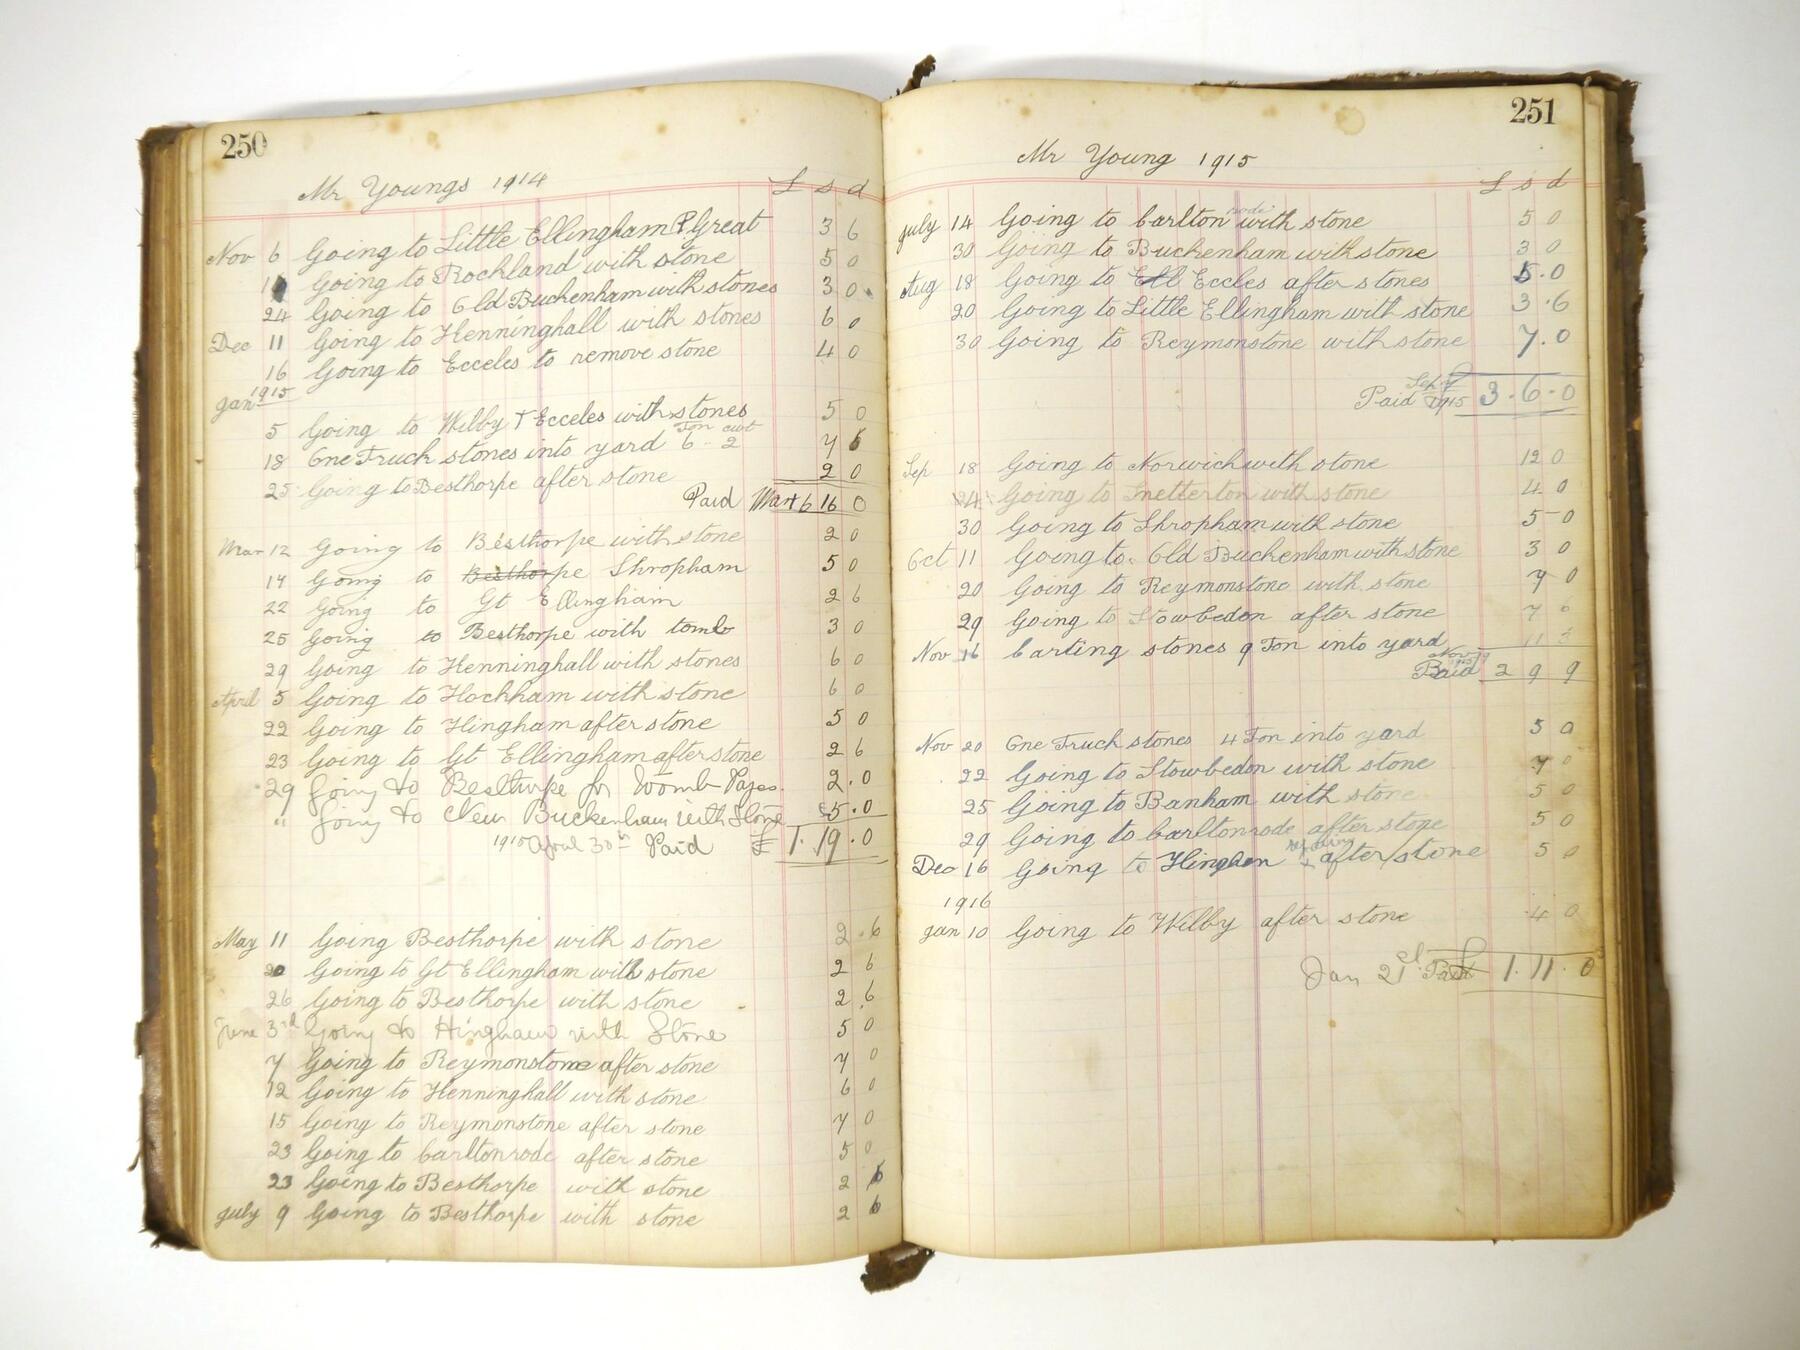 250
Mr Youngs 1914
£ s d
Nov 6 Going to Little Ellingham & Great 3 6
Going to Rockland with stone 5 0
24 Going to Old Buckenham with stones 3 0
Dec 11 Going to Henninghall with stones 6 0
16 Going to Ecceles to remove stone 4 0
Jan 1915
5 Going to Wilby & Ecceles with stones 5 0
Ton cwt
18 One Truck stones into yard 6 - 2 7 6
25 Going to Besthorpe after stone 2 0
Paid Mar 6 16 0
Mar 12 Going to Besthorpe with stone 2 0
17 Going to Besthorpe Shropham 5 0
22 Going to Gt Ellingham 2 6
25 Going to Besthorpe with tomb 3 0
29 Going to Henninghall with stones 6 0
April 5 Going to Hockham with stone 6 0
22 Going to Hingham after stone 5 0
23 Going to Gt Ellingham after stone 2 6
29 Going to Besthorpe for Tomb 2.0
" Going to New Buckenham with Stone 5.0
1915 April 30th Paid £ 1.19.0
May 11 Going Besthorpe with stone 2.6
20 Going to Gt Ellingham with stone 2 6
26 Going to Besthorpe with stone 2 6
June 3rd Going to Hingham with Stone 5 0
7 Going to Reymonstone after stone 7 0
12 Going to Henninghall with stone 6 0
15 Going to Reymonstone after stone 7 0
23 Going to Carltonrode after stone 5 0
23 Going to Besthorpe with stone 2 6
July 9 Going to Besthorpe with stone 2 6
251
Mr Young 1915
£ s d
rode
July 14 Going to Carlton with stone 5 0
30 Going to Buckenham with stone 3 0
Aug 18 Going to Ell Eccles after stones 5.0
20 Going to Little Ellingham with stone 3.6
30 Going to Reymonstone with stone 7.0
Paid Sep 1915 3.6.0
Sep 18 Going to Norwich with stone 12 0
24 Going to Snetterton with stone 4 0
30 Going to Shropham with stone 5-0
Oct 11 Going to Old Buckenham with stone 3 0
20 Going to Reymonstone with stone 7 0
29 Going to Stowbedon after stone 7 6
Nov 16 Carting stones 9 Ton into yard 11 3
Nov 1915
Paid 2 9 9
Nov 20 One Truck stones 4 Ton into yard 5 0
22 Going to Stowbedon with stone 7 0
25 Going to Banham with stone 5 0
29 Going to Carltonrode after stone 5 0
Dec 16 Going to Hingham + after stone 5 0
1916
Jan 10 Going to Wilby after stone 4 0
Jan 21st Paid £ 1.11.0